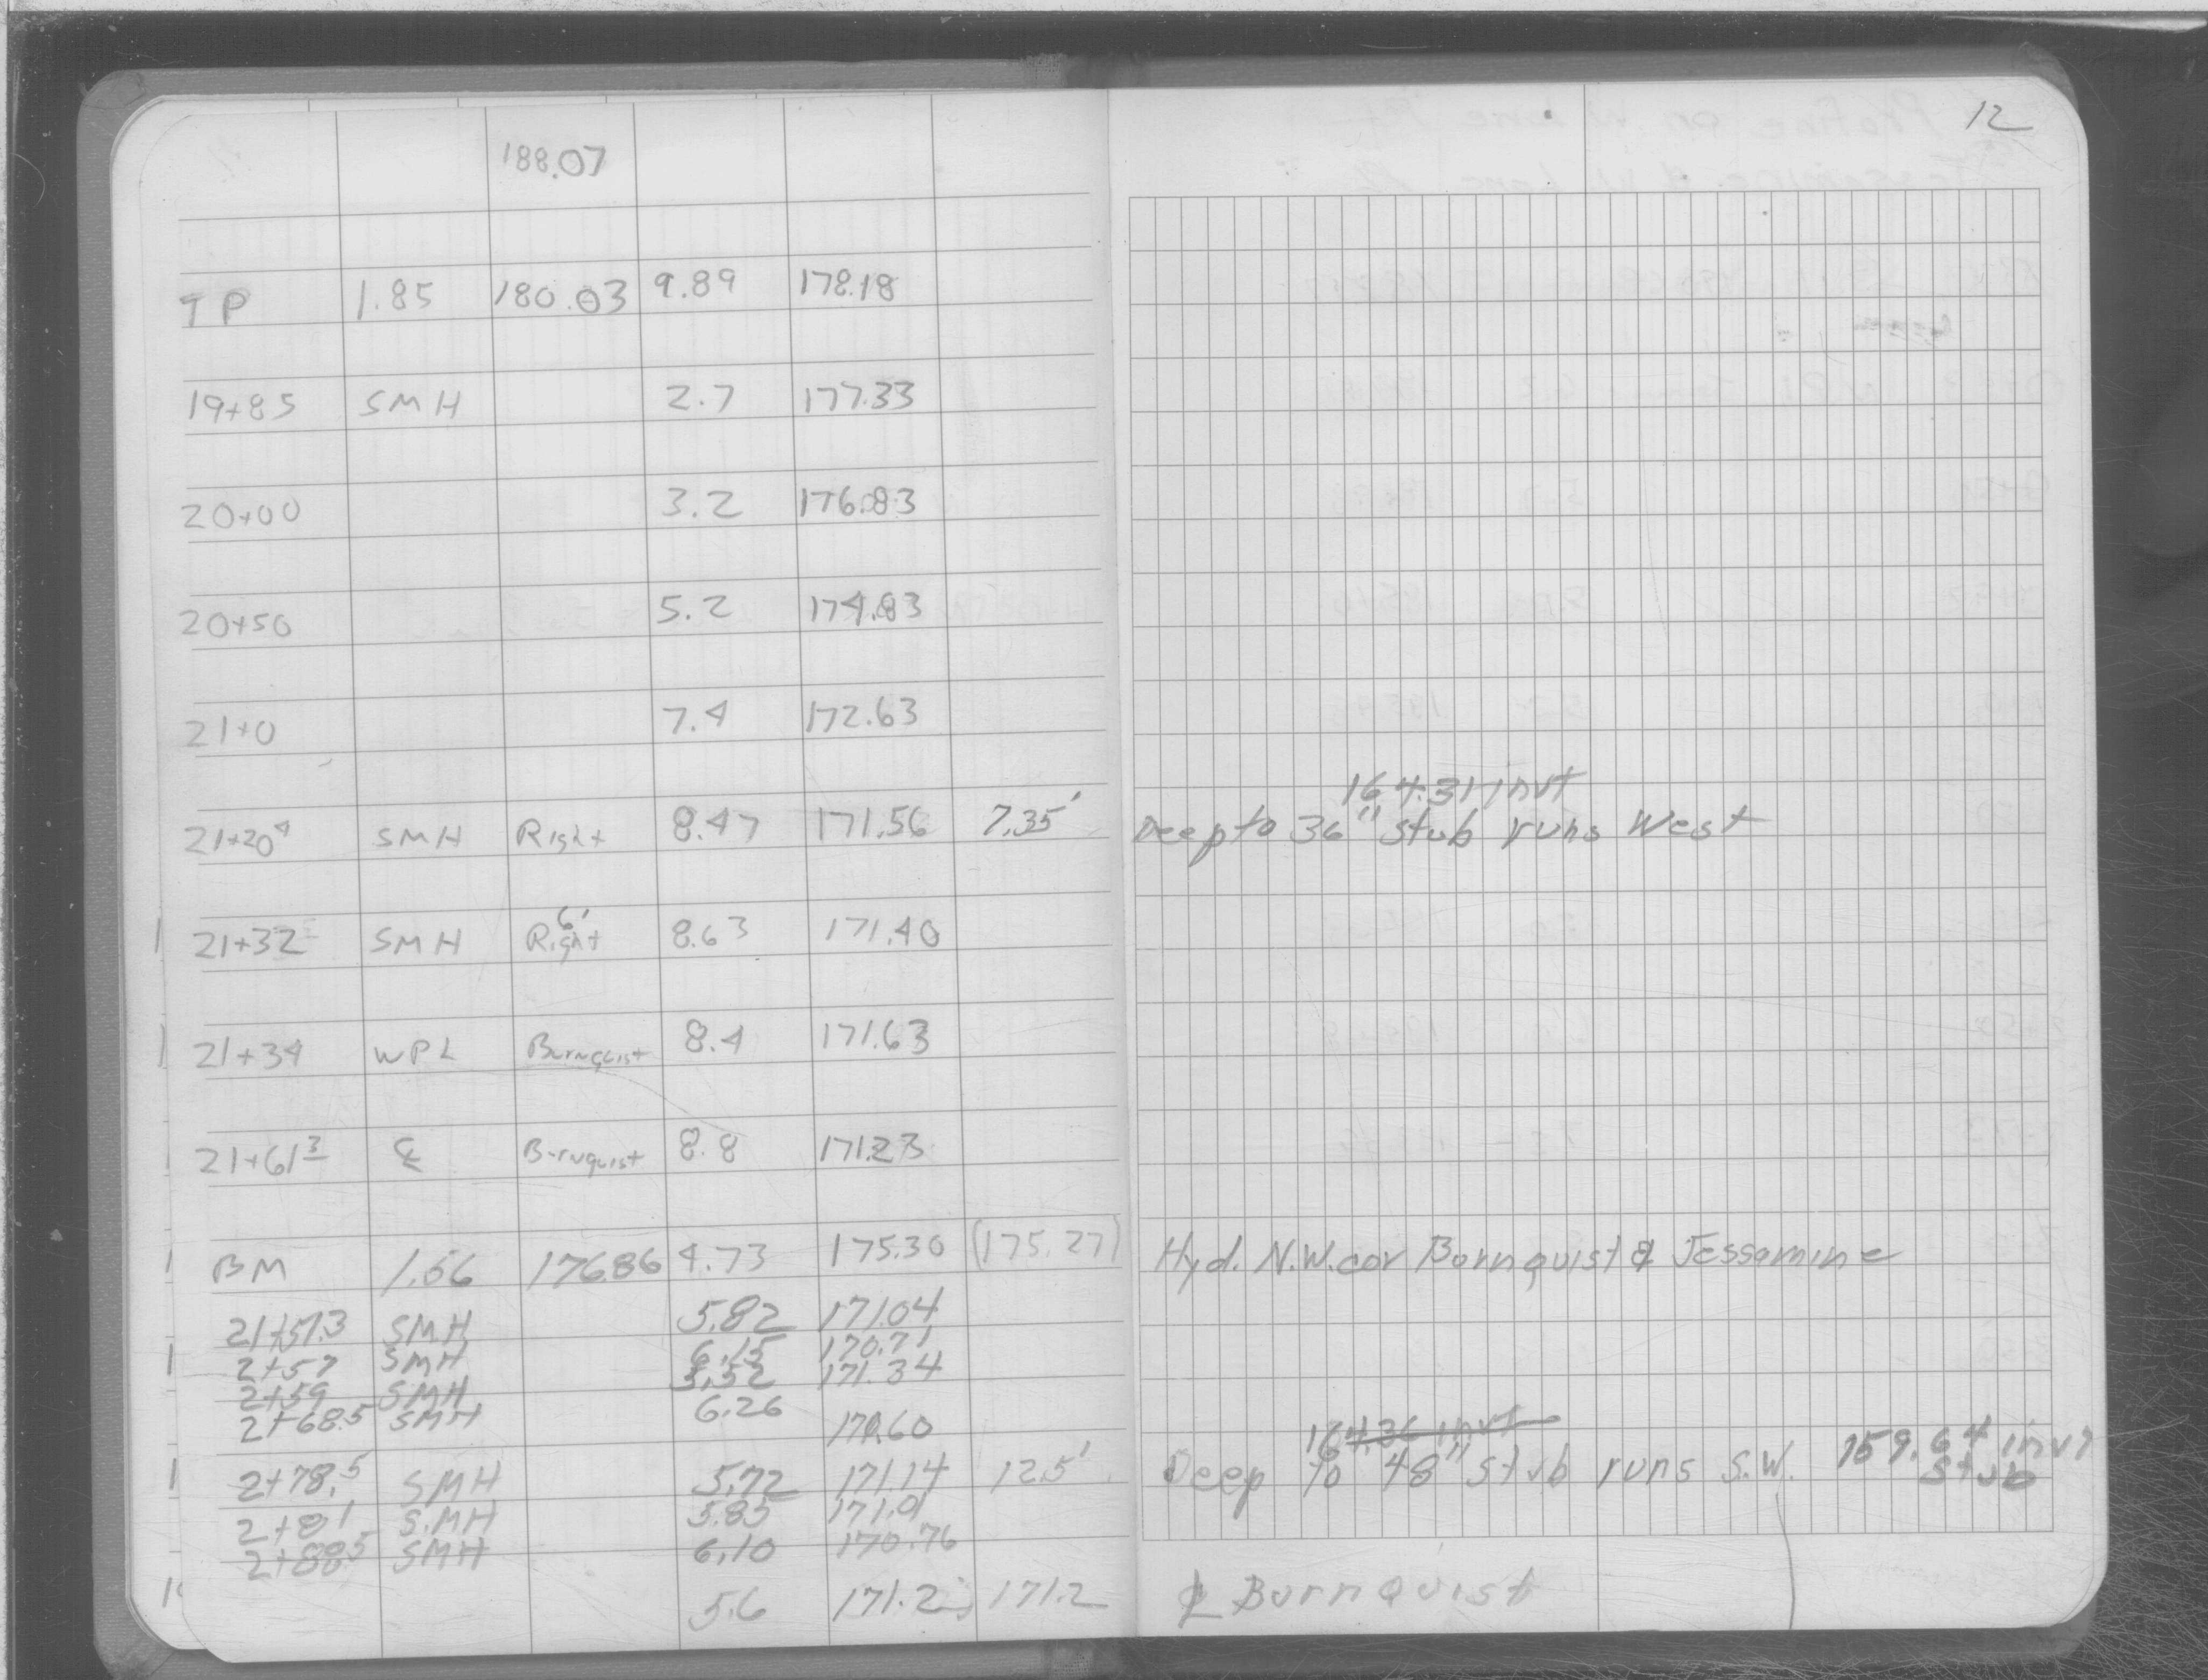 12
188.07
TP 1.85 180.03 9.89 178.18
19+85 SMH 2.7 177.33
20+00 3.2 176.83
20+50 5.2 174.83
21+0 7.4 172.63
164.31 invt
21+20⁴ SMH Right 8.47 171.56 7.35' Deep to 36" stub runs West
6'
21+32 SMH Right 8.63 171.40
21+34 WPL Burnquist 8.4 171.63
21+61³ ℄ Burnquist 8.8 171.23
BM 1.56 176.86 4.73 175.30 (175.27) Hyd. N.W. cor Burnquist & Jessamine
21+57.3 SMH 5.82 171.04
2+57 SMH 6.15 170.71
2+59 SMH 5.52 171.34
2+68.5 SMH 6.26 170.60
164.36 invt
2+78.5 SMH 5.72 171.14 12.5' Deep to 48" stub runs S.W. 159.64 invt
stub
2+81 S.MH 5.85 171.01
2+88.5 SMH 6.10 170.76
5.6 171.2 171.2 ℄ Burnquist